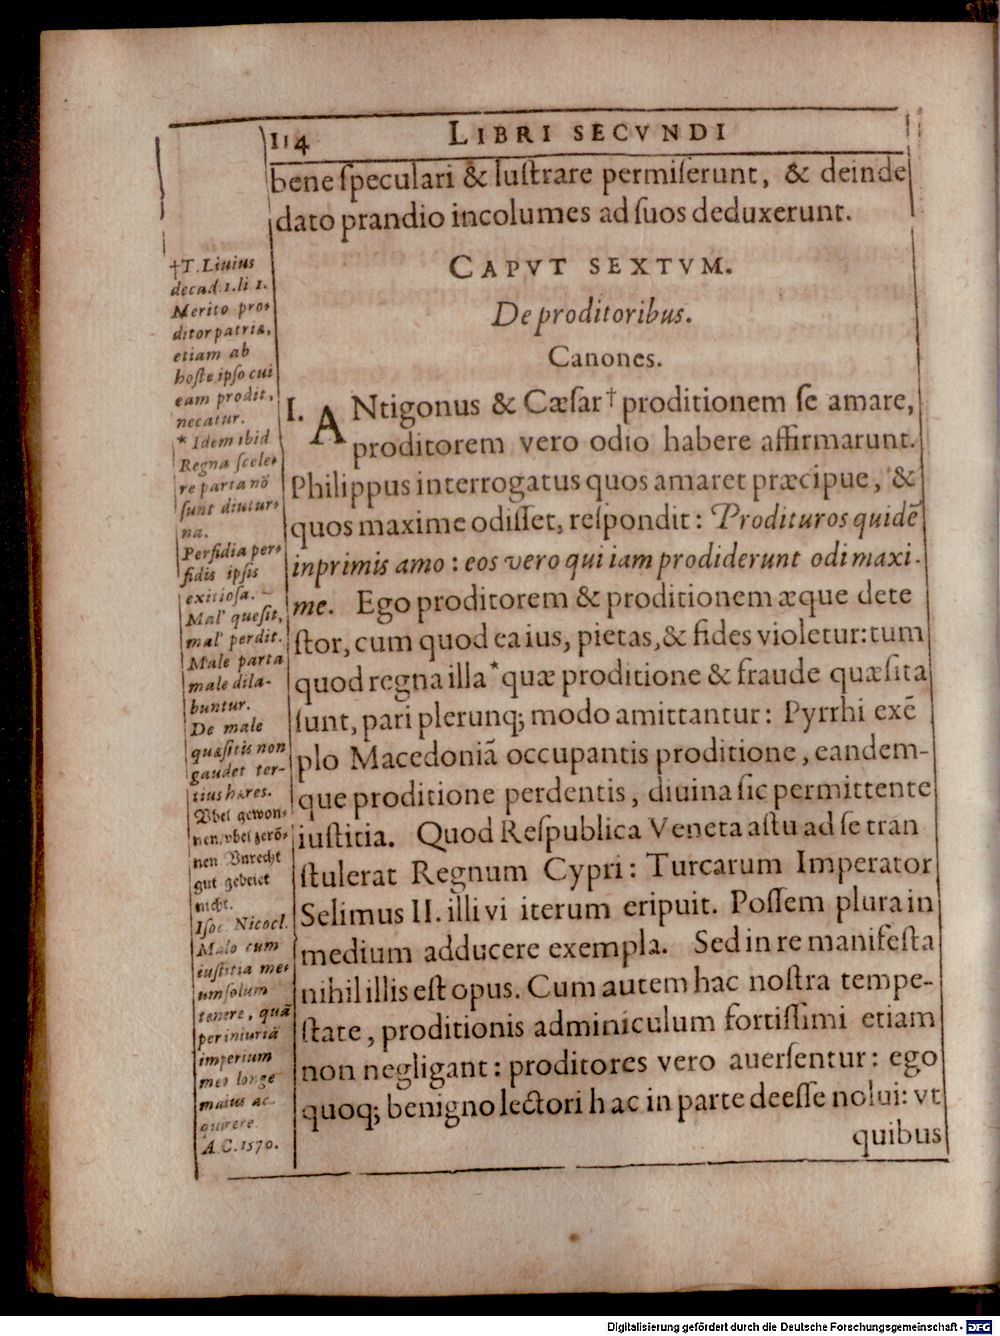 114 LIBRI SECVNDI
bene ſpeculari & luſtrare permiſerunt, & deinde
dato prandio incolumes ad ſuos deduxerunt.
CAPVT SEXTVM.
De proditoribus.
Canones.
I. ANtigonus & Cæſar† proditionem ſe amare,
proditorem vero odio habere affirmarunt.
Philippus interrogatus quos amaret præcipue, &
quos maxime odiſſet, reſpondit: Prodituros quidē
inprimis amo: eos vero qui iam prodiderunt odi maxi-
me. Ego proditorem & proditionem æque dete
ſtor, cum quod ea ius, pietas, & fides violetur: tum
quod regna illa* quæ proditione & fraude quæſita
ſunt, pari plerunq; modo amittantur: Pyrrhi exē
plo Macedoniā occupantis proditione, eandem-
que proditione perdentis, diuina ſic permittente
iuſtitia. Quod Reſpublica Veneta aſtu ad ſe tran
ſtulerat Regnum Cypri: Turcarum Imperator
Selimus II. illi vi iterum eripuit. Poſſem plura in
medium adducere exempla. Sed in re manifeſta
nihil illis eſt opus. Cum autem hac noſtra tempe-
ſtate, proditionis adminiculum fortiſſimi etiam
non negligant: proditores vero auerſentur: ego
quoq; benigno lectori hac in parte deeſſe nolui: vt
quibus
†T. Liuius
decad. 1. li 1.
Merito pro-
ditor patriæ,
etiam ab
hoſte ipſo cui
eam prodit,
necatur.
* Idem ibid
Regna ſcele-
re parta nō
ſunt diutur-
na.
Perfidia per-
fidis ipſis
exitioſa.
Mal' queſit,
mal' perdit.
Male parta
male dila-
buntur.
De male
quæſitis non
gaudet ter-
tius hæres.
Vbel gewon-
nen/vbel zerō-
nen Vnrecht
gut gedeiet
nicht.
Iſoc. Nicocl.
Malo cum
iuſtitia me-
um ſolum
tenere, quā
per iniuriā
imperium
meo longe
maius ac-
quirere
A.C. 1570.
Digitalisierung gefördert durch die Deutsche Forschungsgemeinschaft - DFG